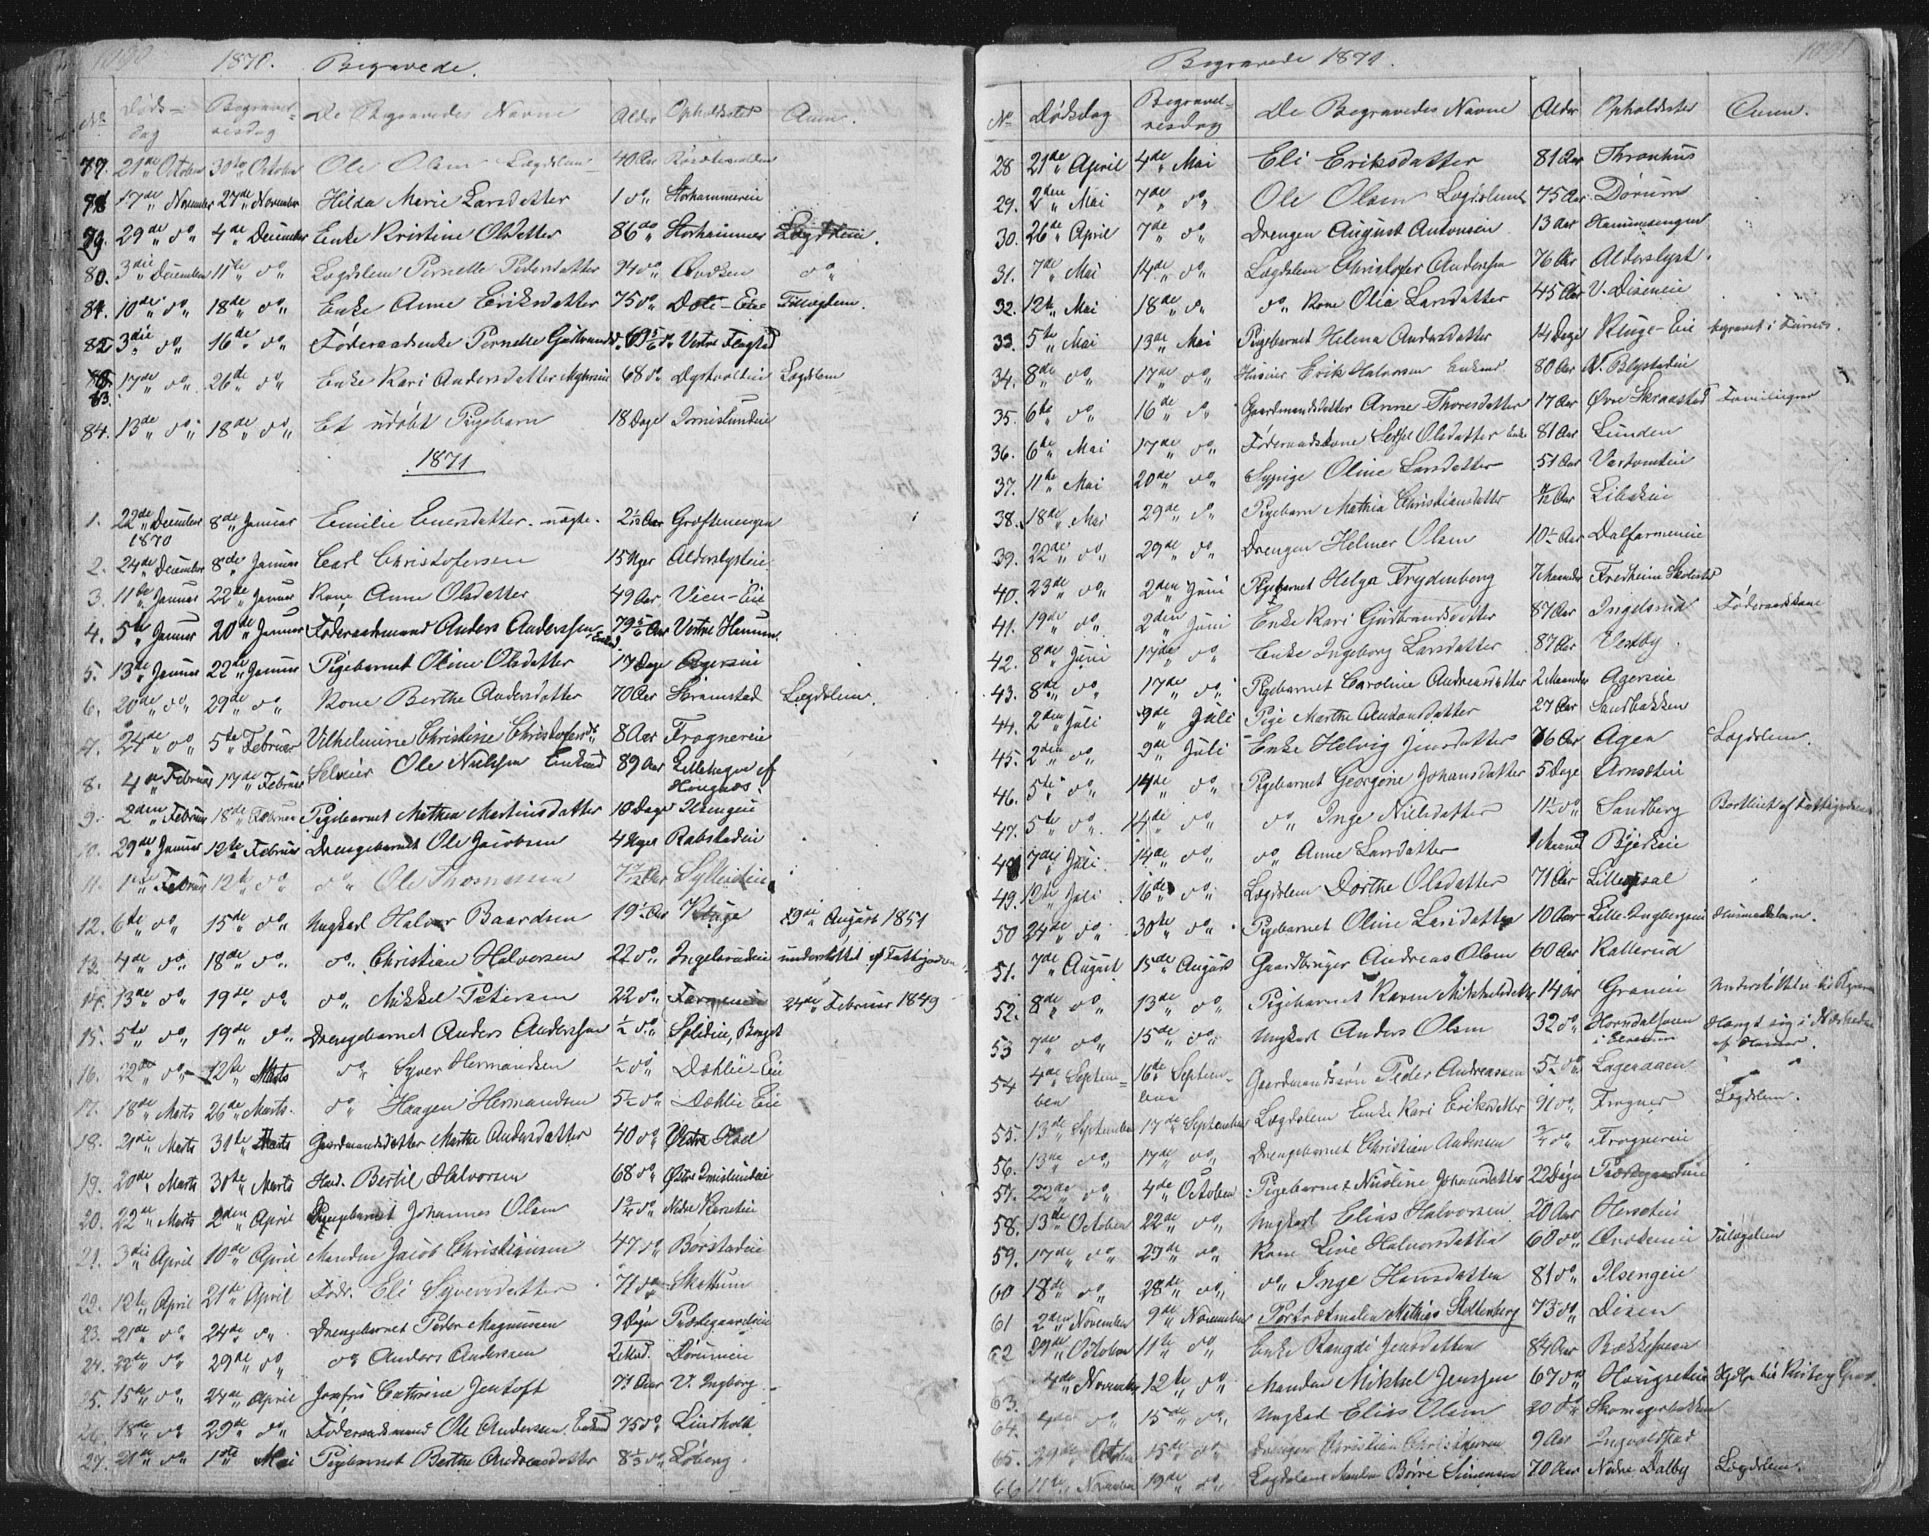 1870. Begravede.
No Døds- dag Begravel- sesdag De Begravedes Navne Alder Opholdsted Anm.
77. 21de October 30te October Ole Olsen Lægdslem 40 Aar
78. 17de November 27de November Hilda Marie Larsdatter 1 do Storhammereie
79. 29de do 4de December Enke Kristine Olsdatter 86 do Storhammer Lægdslem.
80. 3die December 11te do Lægdslem Pernelle Pedersdatter 74 do do
81. 10de do 18de do Enke Anne Eriksdatter 75 do Dotl-Eie Tillægslem.
82 3die do 16de do Føderaadsenke Pernelle Gulbrandsd. 69 5/6 do Vestre Flagstad
83. 17de do 26de do Enke Kari Andersdatter 68 do Dystvoldeie Lægdslem
84. 13de do 18de do Et udøbt Pigebarn 18 Dage Imislundeie
1871
1. 22de December 1870 8de Januar Emilie Enersdatter uægte. 2 1/12 Aar Grøftenengen
2. 24de December 8de Januar Carl Christofersen 15 Uger Alderslysteie
3. 11te Januar 22de Januar Kone Anne Olsdatter 49 Aar Vien-Eie
4. 5te Januar 20de Januar Føderaadsmand Anders Anderssen Enkem. 79 5/6 Aar Vestre Hammer
5. 13de Januar 22de Januar Pigebarnet Oline Olsdatter 17 Dage Agerseie
6. 20de do 29de do Kone Berthe Andersdatter 70 Aar Strømstad Lægdslem.
7. 24de do 5te Februar Vilhelmine Christine Christofersd. 8 Aar Frognereie
8. 4de Februar 17de Februar Selveier Ole Nielsen Enkemd 89 Aar Lillehagen af Hougnæs
9. 2den Februar 18de Februar Pigebarnet Mathea Martinusdatter 10 Dage Ilsengeie
10. 29de Januar 12te Februar Drengebarnet Ole Jacobsen 4 Uger Rabstadeie
11. 1ste Februar 12te do do Ole Thomassen 7/12 Aar
12. 6te do 15de do Ungkarl Halvor Baardsen 19 1/2 Aar Kluge 29de August 1851
13. 4de do 18de do do Christian Halvorsen 22 do Ingelsrudeie understøttet af Fattigvæsen
14. 13de do 19de do do Mikkel Petersen 22 do Farmeneie 24de Februar 1849
15. 5te do 19de do Drengebarnet Anders Anderssen 1/2 do
16. 22de do 12te Marts do Syver Hermandsen 1/2 do Dæhlie-Eie
17. 18de Marts 26de Marts. do Haagen Hermandsen 5 1/2 do Dæhlie Eie
18. 21de Marts 31te Marts Gaardmandsdatter Marthe Andersdatter 40 do Østre Hoel
19. 20de Marts 31te Marts Huusm. Bertil Halvorsen 68 do Østre Imislundeie
20. 22de Marts 2den April Drengebarnet Johannes Olsen 1 2/12 do Nedre Kørseteie
21. 3die April 10de April Manden Jacob Christiansen 47 do Børstadeie
22. 12te April 21de April Fødr. Eli Syversdatter 71 do Skattum
23. 21de do 24de do Drengebarnet Peder Magnussen 9 Døgn Præstegaardseie
24. 22de do 29de do do Anders Anderssen 2 Mnd. Dørumeie
25. 15de do 24de April Jomfru Cathrine Jentoft 71 Aar V. Ingberg
26. 18de do 29de do Føderaadsmand Ole Anderssen Enkemd 75 do Lindholt
27. 21de do 1ste Mai Pigebarnet Berthe Andreasdatter 8 1/2 do Løberg.
Begravede 1871. 1091
No Dødsdag Begravel- sesdag De Begravedes Navne Alder Opholdsted Anm.
28 21de April 4de Mai Eli Eriksdatter 81 Aar Thronhus
29. 2den Mai 7de do Ole Olsen Lægdslem 75 Aar Dørum
30. 26de April 7de do Drengen August Antonsen 13 Aar Hammerengen
31. 7de Mai 14de do Lægdslem Christofer Andersen 76 Aar Alderslyst.
32. 12te Mai 18de do do Kone Olia Larsdatter 45 Aar V. Diseneie
33. 5te Mai 13de Mai Pigebarnet Helena Andersdatter 14 Dage Kluge-Eie begravet i Furnes.
34. 8de do 17de do Huseier Erik Halvorsen Enkemd 80 Aar N. Blystadeie
35. 6te do 16de do Gaardmandsdatter Anne Thoresdatter 17 Aar Øvre Skraastad Familiegrav
36. 6te Mai 17de do Føderaadskone Seffel Olsdatter Enke 81 Aar Lunden
37. 11te Mai 20de do Sypige Oline Larsdatter 51 Aar Vestvoldeie
38. 18de Mai 29de do Pigebarn Mathia Christiansdatter Aar Libakeie
39. 22de do 29de do Drengen Helmer Olsen 10 1/2 Aar Dalfarmeneie
40. 23de do 2den Juni Pigebarnet Helga Frydenberg 7 Maaneder Fredheim Skolested
41. 19de do 2den Juni Enke Kari Gulbrandsdatter 87 Aar Ingelsrud Føderaadskone
42. 8de Juni 17de do Enke Ingeborg Larsdatter 87 Aar Vendby
43. 8de do 17de do Pigebarnet Caroline Andreasdatter 2 Maaneder Agerseie
44. 2den Juli 9de Juli Pige Marthe Antonsdatter 27 Aar Sandbakken
45. 2den do 9de Juli Enke Helvig Jensdatter 76 Aar Agen Lægdslem.
46. 5te do 14de do Pigebarnet Georgine Johansdatter 5 Dage Arnseteie
47. 5te do 14de do do Inge Nilsdatter 11 1/2 do Sandberg Bortleiet af Fattigvæsenet
48 7de Juli 14de do do Anne Larsdatter 1 Maaned Bjerkeie
49. 12te Juli 16de do Lægdslem Dorthe Olsdatter 71 Aar Lillehval
50 24de do 30te do Pigebarnet Oline Larsdatter 10 Aar Lille Ingbergeie Huusmandsbarn.
51. 7de August 15de August Gaardbruger Andreas Olsen 60 Aar Kallerud
52. 8de do 13de do Pigebarnet Karen Mikkelsdatter 14 Aar Graneie
53 7de do 15de do Ungkarl Anders Olsen 32 do Hornsdalsveen i Elverum Hængt sig i Nærheden af Hamar.
54 4de September 16de September Gaardmandssøn Peder Andreassen 5 1/2 do Lageraaen
55. 13de September 17de September Lægdslem Enke Kari Eriksdatter 91 do Frogner Lægdslem.
56. 13de do 17de do Drengebarnet Christian Andersen 3/4 do Frognereie
57. 22de do 4de October Pigebarnet Nicoline Johansdatter 22 Døgn Præstegaardseie
58. 13de October 22de do Ungkarl Elias Halvorsen 20 Aar Herseteie
59. 17de do 29de do Kone Live Halvorsdatter 60 do Tillægslem
60 18de do 28de do do Inge Hansdatter 81 do Ilsengeie
61 2den November 9de November Portrætmaler Mathias Stoltenberg 73 do Disen
62 29de October 11te do Enke Rangdi Jensdatter 84 Aar Bækkesveen
63. 4de November 12te do Manden Mikkel Jenssen 67 do Hougseteie
64. 4de do 15de do Ungkarl Elias Olsen 20 do Skomagerbakken
65. 29de October 15de do Drengen Christian Christiansen 9 Aar Ingvoldstad
66 11te November 19de do Lægdslem Manden Børre Simensen 70 Aar Nedre Dalby Lægdslem.